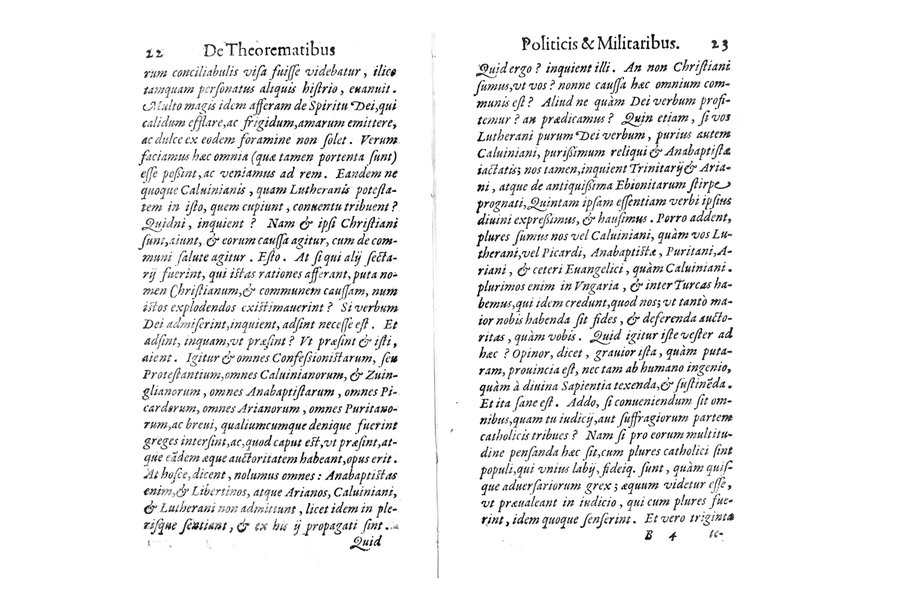 22 De Theorematibus
rum conciliabulis visa fuisse videbatur, ilico
tamquam personatus aliquis histrio, euanuit.
Multo magis idem afferam de Spiritu Dei, qui
calidum efflare, ac frigidum, amarum emittere,
ac dulce ex eodem foramine non solet. Verum
faciamus hæc omnia (quæ tamen portenta sunt)
esse possint, ac veniamus ad rem. Eandem ne
quoque Caluinianis, quam Lutheranis potesta-
tem in isto, quem cupiunt, conuentu tribuent?
Quidni, inquient? Nam & ipsi Christiani
sunt, aiunt, & eorum caussa agitur, cum de com-
muni salute agitur. Esto. At si qui alij secta-
rij fuerint, qui istas rationes afferant, puta no-
men Christianum, & communem caussam, num
istos explodendos existimauerint? Si verbum
Dei admiserint, inquient, adsint necesse est. Et
adsint, inquam, vt præsint? Vt præsint & isti,
aient. Igitur & omnes Confessionistarum, seu
Protestantium, omnes Caluinianorum, & Zuin-
glianorum, omnes Anabaptistarum, omnes Pi-
cardorum, omnes Arianorum, omnes Puritano-
rum, ac breui, qualiumcumque denique fuerint
greges intersint, ac, quod caput est, vt præsint, at-
que eãdem æque auctoritatem habeant, opus erit.
At hosce, dicent, nolumus omnes: Anabaptistas
enim, & Libertinos, atque Arianos, Caluiniani,
& Lutherani non admittunt, licet idem in ple-
risque sentiant, & ex his ij propagati sint.
Quid
Politicis & Militaribus. 23
Quid ergo? inquient illi. An non Christiani
sumus, vt vos? nonne caussa hæc omnium com-
munis est? Aliud ne quàm Dei verbum profi-
temur? an prædicamus? Quin etiam, si vos
Lutherani purum Dei verbum, purius autem
Caluiniani, purissimum reliqui & Anabaptistæ
iactatis; nos tamen, inquient Trinitarij & Aria-
ni, atque de antiquissima Ebionitarum stirpe
prognati, Quintam ipsam essentiam verbi ipsius
diuini expressimus, & hausimus. Porro addent,
plures sumus nos vel Caluiniani, quàm vos Lu-
therani, vel Picardi, Anabaptistæ, Puritani, A-
riani, & ceteri Euangelici, quàm Caluiniani.
plurimos enim in Vngaria, & inter Turcas ha-
bemus, qui idem credunt, quod nos; vt tantò ma-
ior nobis habenda sit fides, & deferenda aucto-
ritas, quàm vobis. Quid igitur iste vester ad
hæc? Opinor, dicet, grauior ista, quàm puta-
ram, prouincia est, nec tam ab humano ingenio,
quàm à diuina Sapientia texenda, & sustinẽda.
Et ita sane est. Addo, si conueniendum sit om-
nibus, quam tu iudicij, aut suffragiorum partem
catholicis tribues? Nam si pro eorum multitu-
dine pensanda hæc sit, cum plures catholici sint
populi, qui vnius labij, fideiq. sunt, quàm quis-
que aduersariorum grex; æquum videtur esse,
vt præualeant in iudicio, qui cum plures fue-
rint, idem quoque senserint. Et vero triginta
B 4 te-